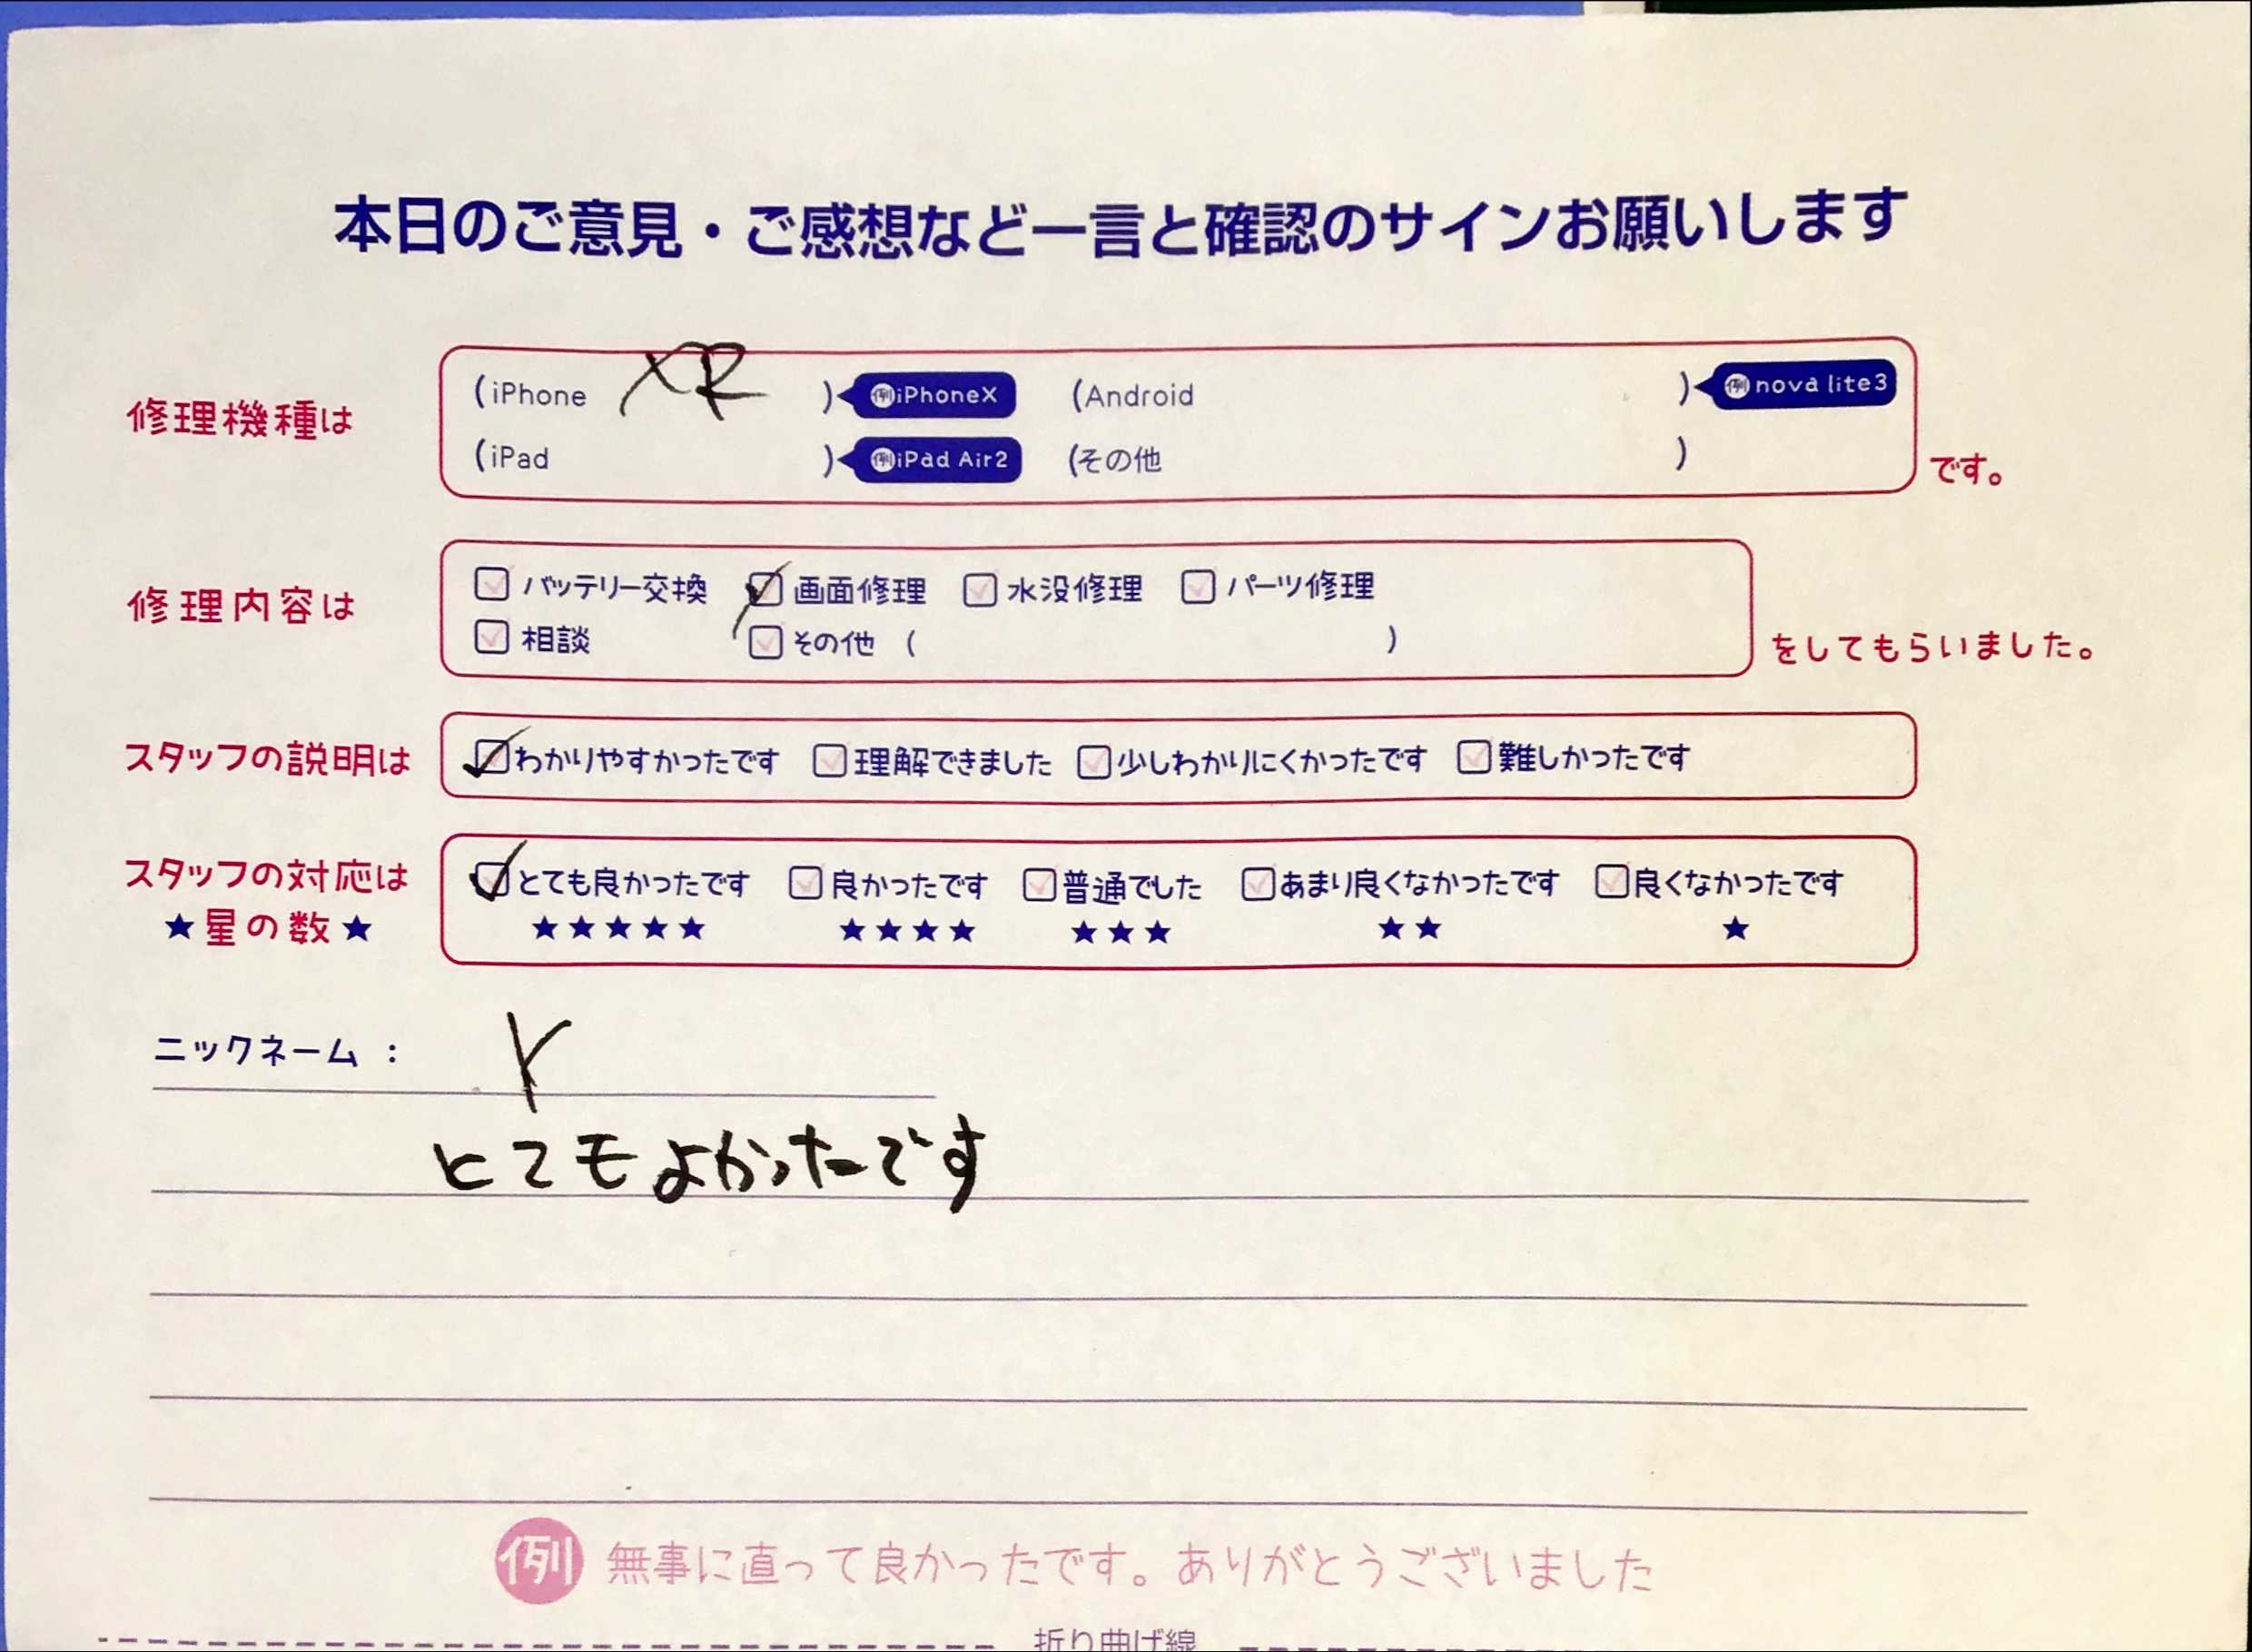 本日のご意見・ご感想など一言と確認のサインお願いします
修理機種は
(iPhone XR ) 例iPhoneX (Android ) 例nova lite3
(iPad ) 例iPad Air2 (その他 )
です。
修理内容は
バッテリー交換 画面修理 水没修理 パーツ修理
相談 その他 ( )
をしてもらいました。
スタッフの説明は
わかりやすかったです 理解できました 少しわかりにくかったです 難しかったです
スタッフの対応は
★星の数★
とても良かったです 良かったです 普通でした あまり良くなかったです 良くなかったです
★★★★★ ★★★★ ★★★ ★★ ★
ニックネーム : Y
とてもよかったです
例 無事に直って良かったです。ありがとうございました
折り曲げ線